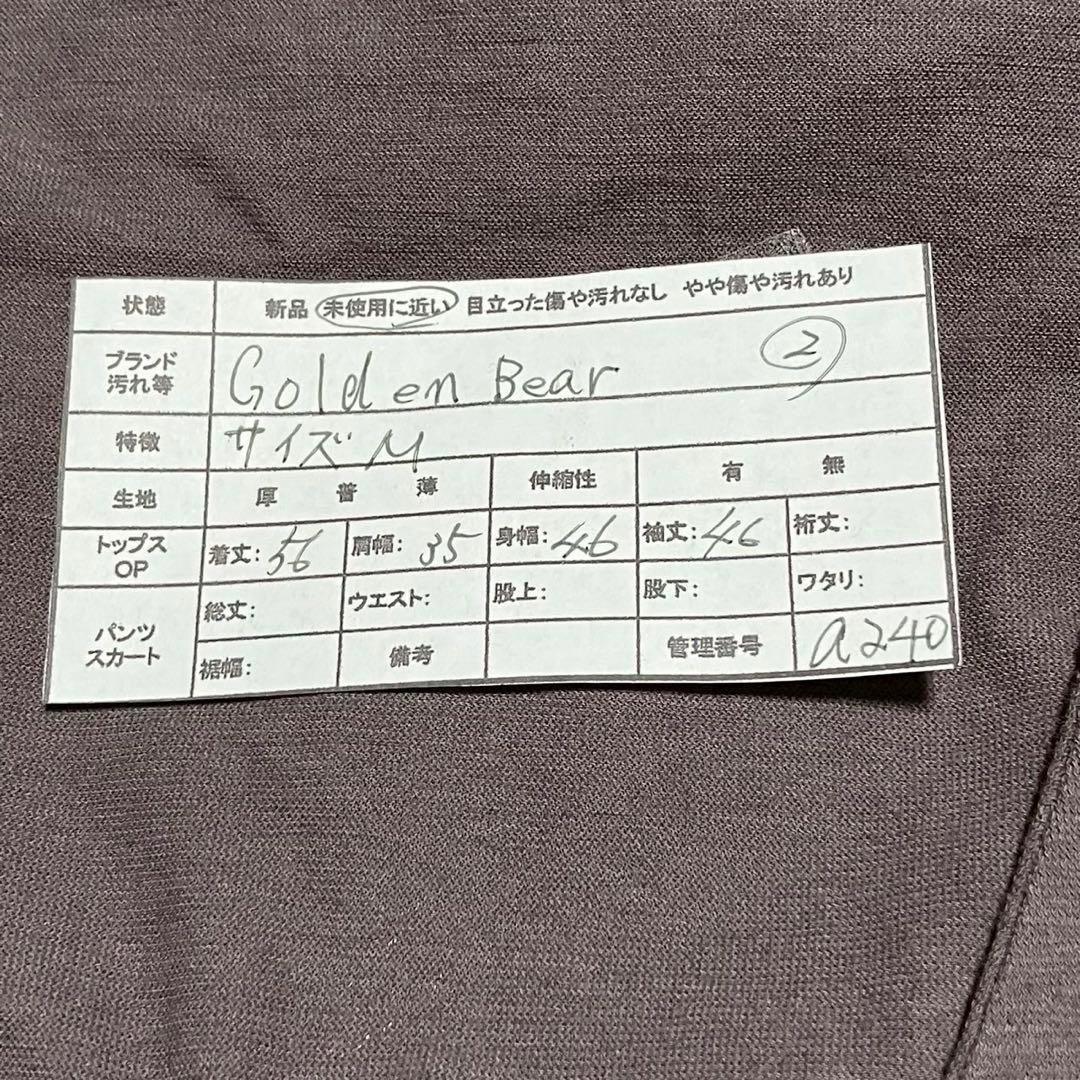 状態 新品 未使用に近い 目立った傷や汚れなし やや傷や汚れあり
ブランド
汚れ等 Golden Bear ②
特徴 サイズ M
生地 厚 普 薄 伸縮性 有 無
トップス
OP 着丈: 56 肩幅: 35 身幅: 46 袖丈: 46 裄丈:
パンツ
スカート 総丈: ウエスト: 股上: 股下: ワタリ:
裾幅: 備考 管理番号 a240